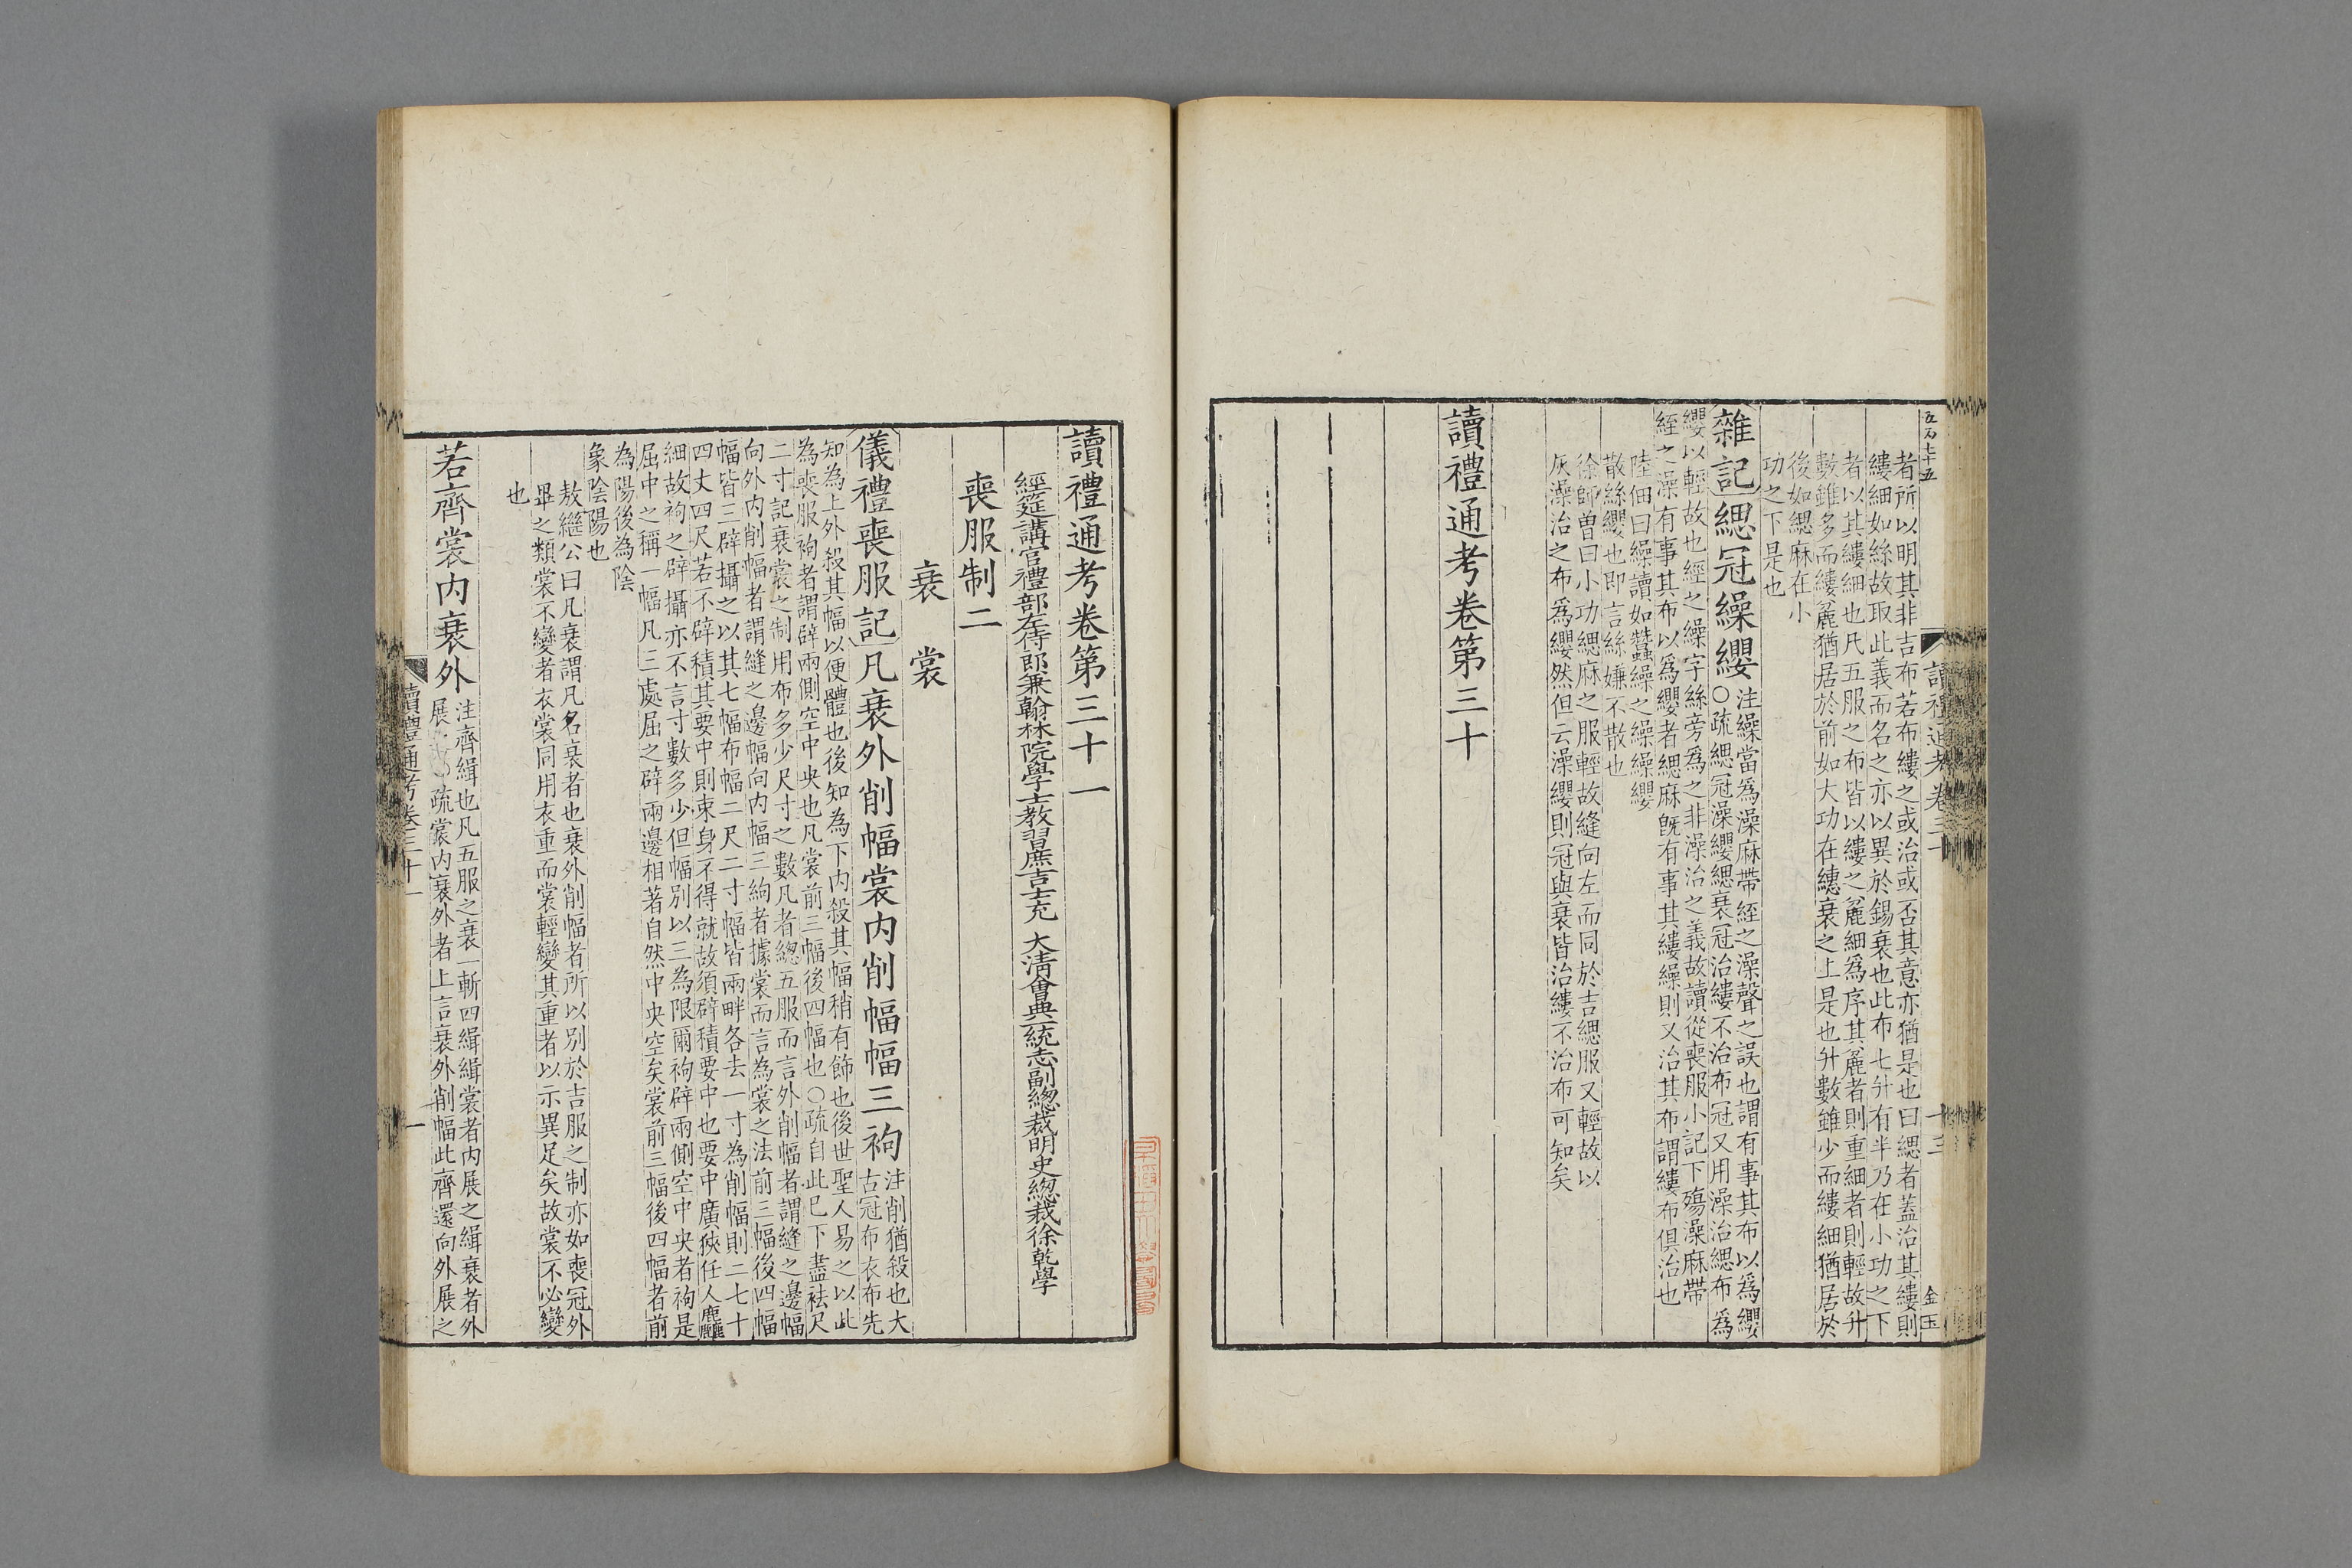 五百七十五
者所以明其非吉布若布縷之或治或否其意亦猶是也曰緦者蓋治其縷則
縷細如絲故取此義而名之亦以異於錫衰也此布七升有半乃在小功之下
者以其縷細也凡五服之布皆以縷之麄細爲序其麄者則重細者則輕故升
數雖多而縷麄猶居於前如大功在繐衰之上是也升數雖少而縷細猶居於
後如緦麻在小
功之下是也
雜記緦冠繰纓
注繰當爲澡麻帶絰之澡聲之誤也謂有事其布以爲纓
○疏緦冠澡纓緦衰冠治縷不治布冠又用澡治緦布爲
纓以輕故也經之繰字絲旁爲之非澡治之義故讀從喪服小記下殤澡麻帶
絰之澡有事其布以爲纓者緦麻旣有事其縷繰則又治其布謂縷布俱治也
陸佃曰繰讀如蠶繰之繰繰纓
散絲纓也即言絲嫌不散也
徐師曾曰小功緦麻之服輕故縫向左而同於吉緦服又輕故以
灰澡治之布爲纓然但云澡纓則冠與衰皆治縷不治布可知矣
讀禮通考卷第三十
讀禮通考卷三十
十三
金玉
讀禮通考卷第三十一
經筵講官禮部左侍郎兼翰林院學士教習庶吉士充 大清會典一統志副總裁明史總裁徐乾學
喪服制二
衰 裳
儀禮喪服記凡衰外削幅裳内削幅幅三袧
注削猶殺也大
古冠布衣布先
知為上外殺其幅以便體也後知為下内殺其幅稍有飾也後世聖人易之以此
為喪服袧者謂辟兩側空中央也凡裳前三幅後四幅也○疏自此巳下盡袪尺
二寸記衰裳之制用布多少尺寸之數凡者總五服而言外削幅者謂縫之邊幅
向外内削幅者謂縫之邊幅向内幅三絇者據裳而言為裳之法前三幅後四幅
幅皆三辟攝之以其七幅布幅二尺二寸幅皆兩畔各去一寸為削幅則二七十
四丈四尺若不辟積其要中則束身不得就故須辟積要中也要中廣狹任人麤
細故袧之辟攝亦不言寸數多少但幅別以三為限爾袧辟兩側空中央者袧是
屈中之稱一幅凡三處屈之辟兩邊相著自然中央空矣裳前三幅後四幅者前
為陽後為陰
象陰陽也
敖繼公曰凡衰謂凡名衰者也衰外削幅者所以別於吉服之制亦如喪冠外
畢之類裳不變者衣裳同用衣重而裳輕變其重者以示異足矣故裳不必變
也
若齊裳内衰外
注齊緝也凡五服之衰一斬四緝緝裳者内展之緝衰者外
展之○疏裳内衰外者上言衰外削幅此齊還向外展之
讀禮通考卷三十一
一